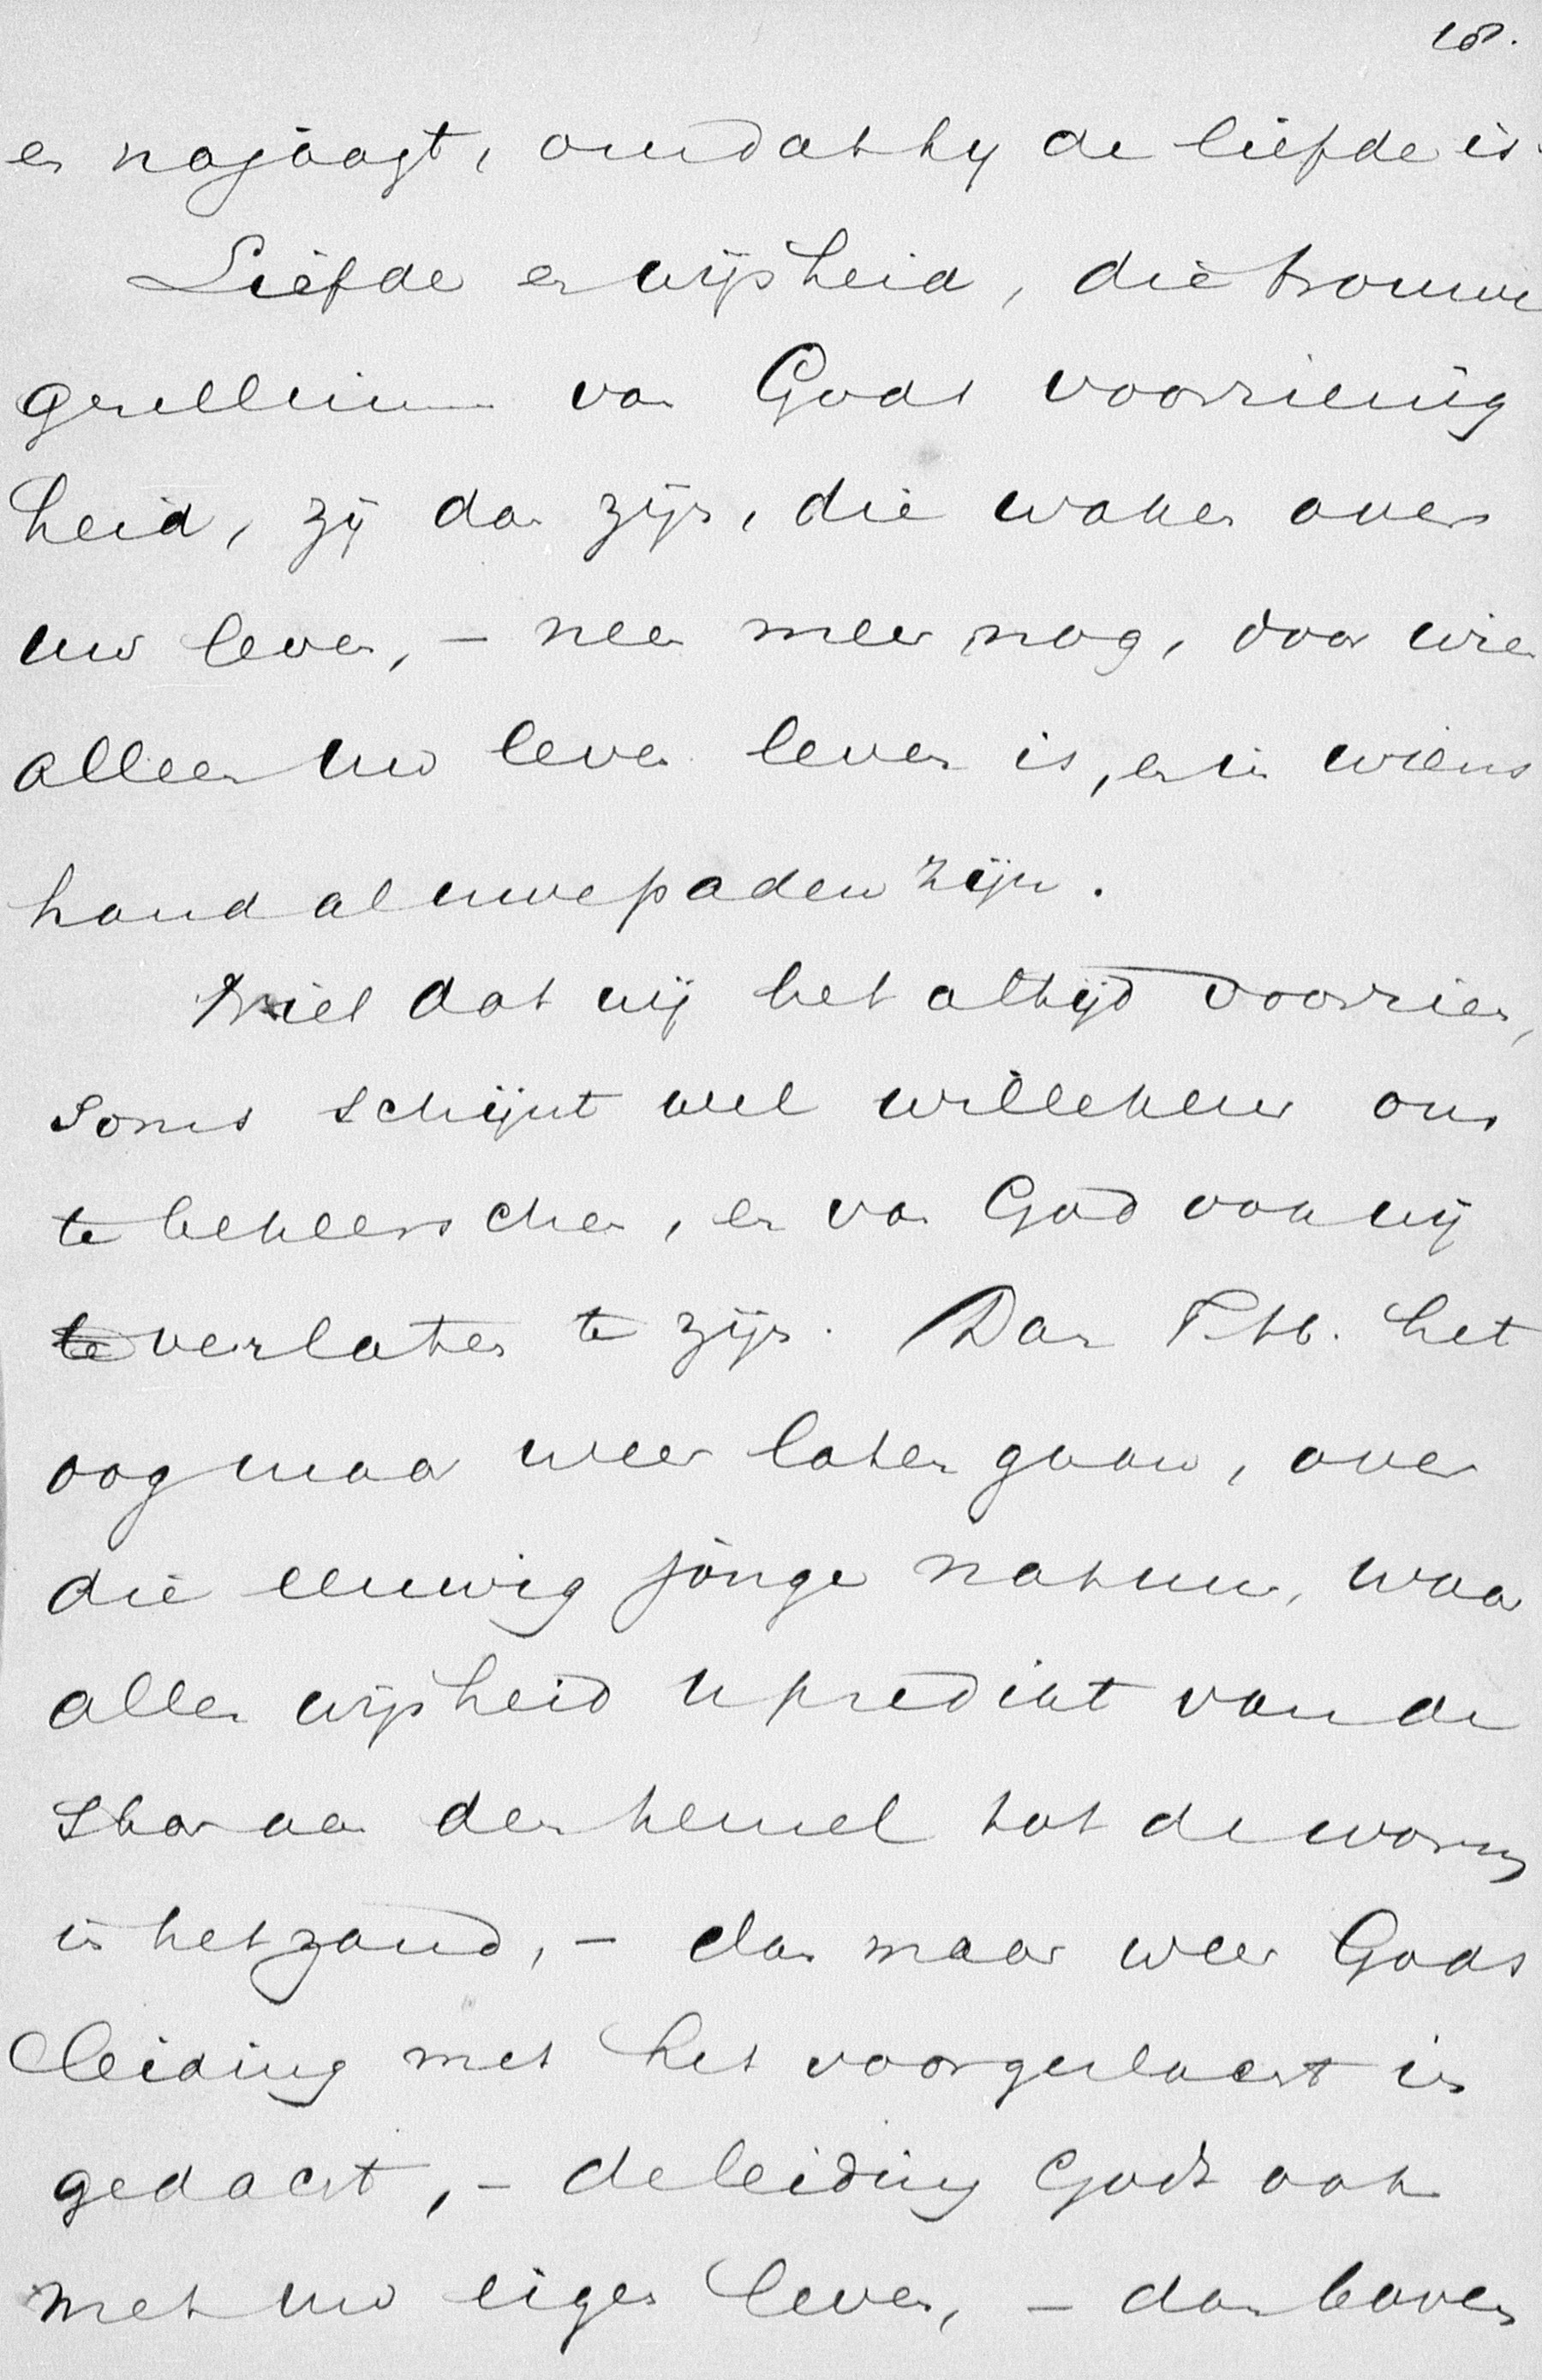 18.
en najaagt, omdat hy de liefde is.
Liefde en wijsheid, die trouwe
gezellinnen van Gods voorzienig
heid, zij dan zijn, die waken over
uw leven, - neen meer nog, door wien
alleen uw leven leven is, en in wiens
hand al uwe paden zijn.
Niet dat wij het altijd voorzien,
soms schijnt wel willekeur ons
te beheerschen, en van God ook wij
te verlaten te zijn. Dan T. H. het
oog maar weer laten gaan, over
die eeuwig jonge natuur, waar
alles wijsheid u predikt van de
star aan den hemel tot de worm
in het zand, - dan maar weer Gods
leiding met het voorgeslacht in
gedacht, - de leiding Gods ook
met uw eigen leven, - dan boven